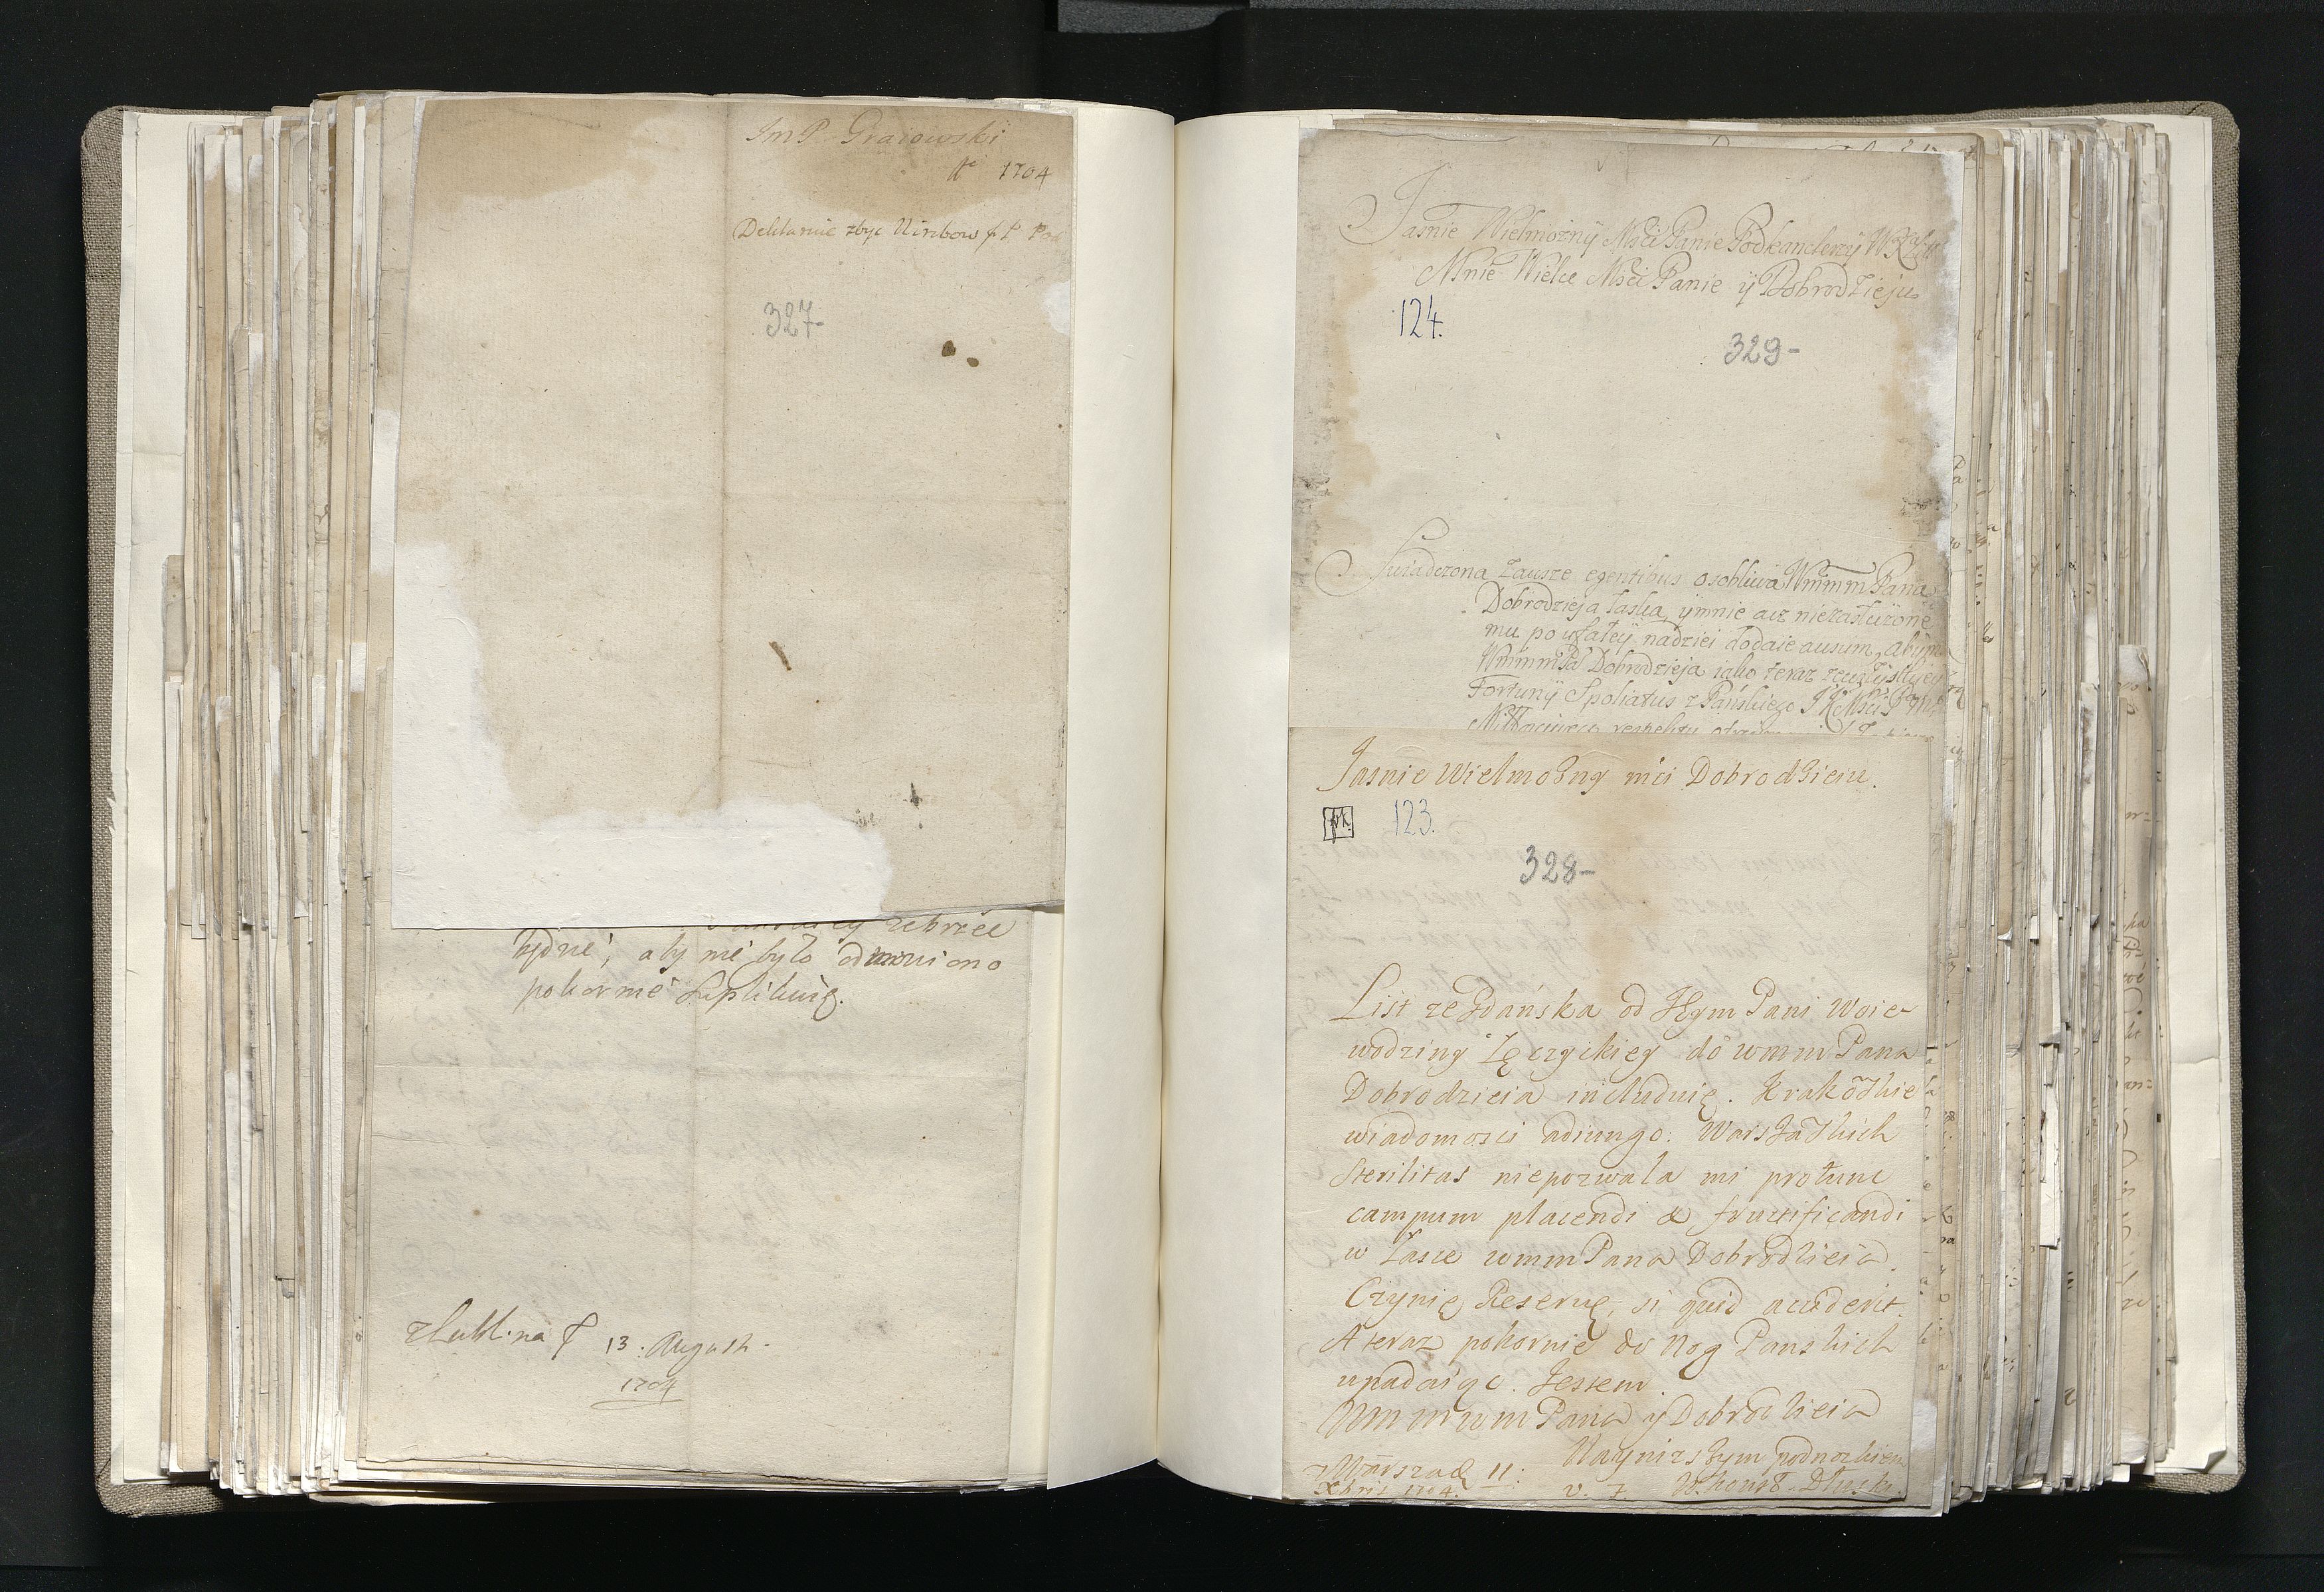 ImP Graiowski
Ao 1704
Deklaruie zbyc
327-
zebrze
będzie, aby nie było odmowiono
pokornie suplikuię.
z Lublina 13. Augusti
1704
Jasnie Wielmozny Mści Panie Podkanclerzy
Mnie Wielce Mści Panie ÿ Dobrodzieju
124.
329-
Swiadczona zawsze egentibus osobliwa Wmmm Pana
Dobrodzieja łaska, ÿmnie acz niezasłuzone
mu po ufałeÿ nadziei dodaie ausum, abÿm
Wmmm Pa Dobrodzieja iako teraz
Fortunÿ Spoliatus z Pańskiego
respektu
Jasnie Wielmozny mći Dobrodzieiu.
123.
328-
List ze Gdańska od Jeÿm Pani Woie-
wodziny Łęczyckiey do wmm Pana
Dobrodzieia includuię. Krakowskie
wiadomosci adiungo. Warszawskich
Sterilitas niepozwala mi protunc
campum placendi & fructificandi
w Łasce wmm Pana Dobrodzieia.
Czynię Reserwę, si quid acciderit.
A teraz pokornie do Nog Panskich
upadaiąc. Jestem.
Wmmwm Pana y Dobrodzieia
Naynizszym podnozkiem
z Warszawy 11:
Xbris 1704.